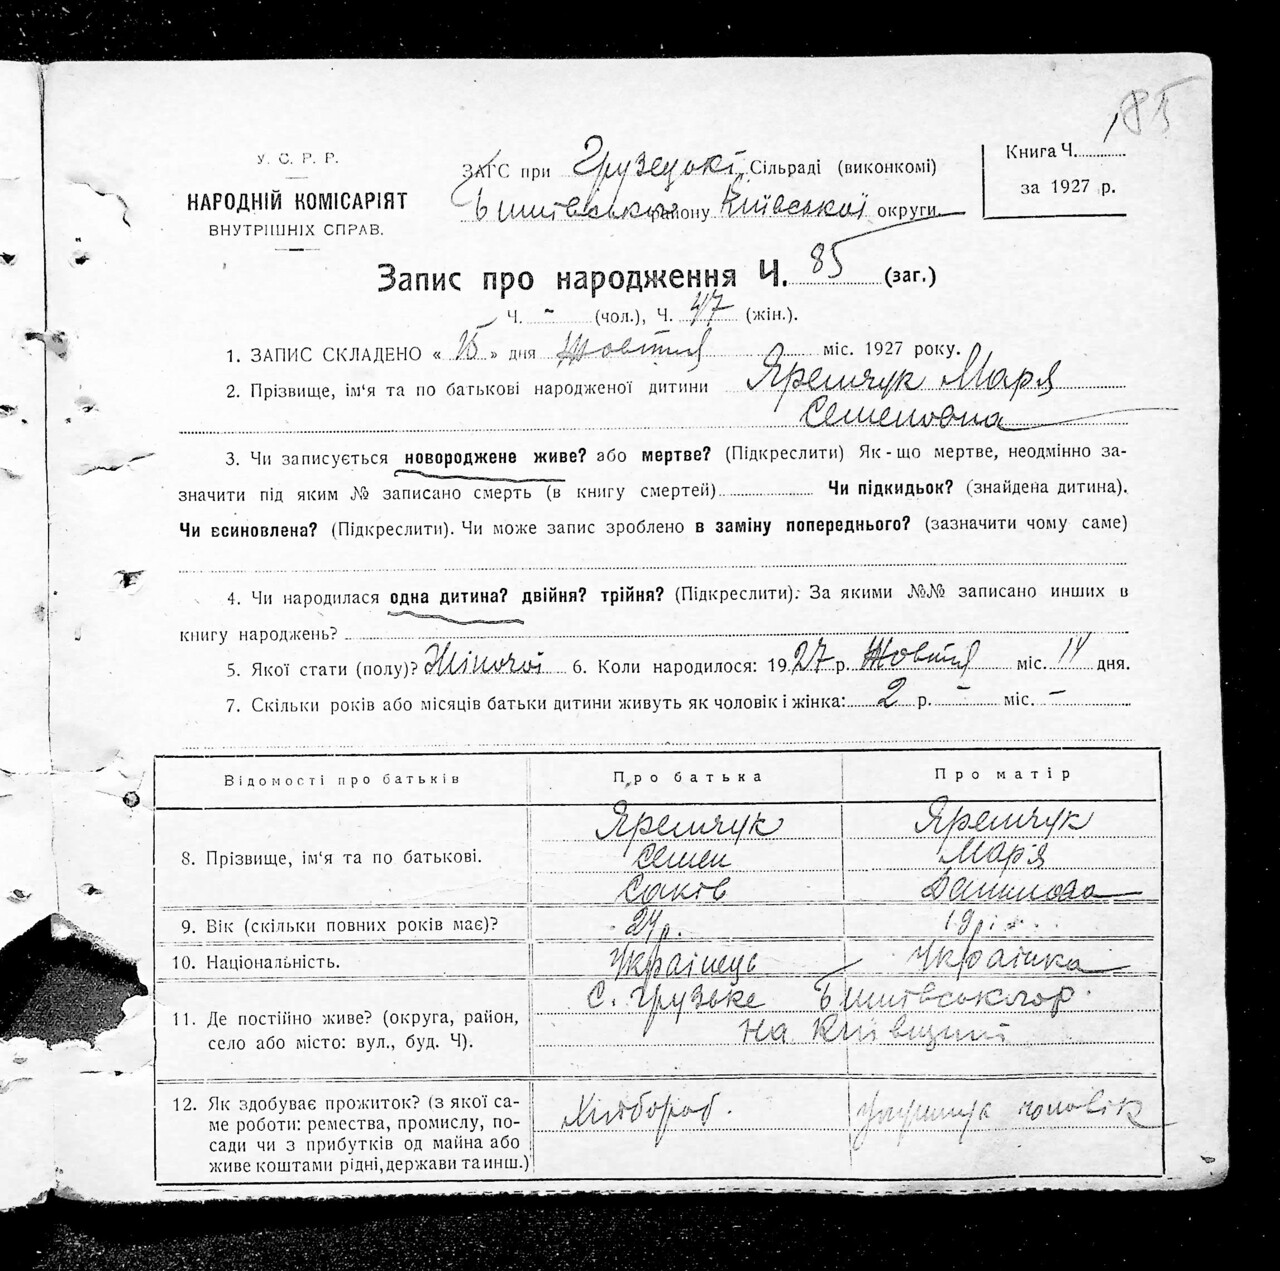 185
У. С. Р. Р.
НАРОДНІЙ КОМІСАРІЯТ
ВНУТРІШНІХ СПРАВ.
ЗАГС при Грузецькі Сільраді (виконкомі)
Бишівського району Київської округи
Книга Ч. 1
за 1927 р.
Запис про народження Ч. 85 (заг.)
Ч. - (чол.), Ч. 47 (жін.).
1. ЗАПИС СКЛАДЕНО « 15 » дня Жовтня міс. 1927 року.
2. Прізвище, ім'я та по батькові народженої дитини Яремчук Марія
Семеновна
3. Чи записується новороджене живе? або мертве? (Підкреслити) Як-що мертве, неодмінно за-
значити під яким № записано смерть (в книгу смертей) Чи підкидьок? (знайдена дитина).
Чи всиновлена? (Підкреслити). Чи може запис зроблено в заміну попереднього? (зазначити чому саме)
4. Чи народилася одна дитина? двійня? трійня? (Підкреслити). За якими №№ записано инших в
книгу народжень?
5. Якої стати (полу)? Жіночої 6. Коли народилося: 1927 р. Жовтня міс. 14 дня.
7. Скільки років або місяців батьки дитини живуть як чоловік і жінка: 2 р. - міс. -
Відомості про батьків Про батька Про матір
8. Прізвище, ім'я та по батькові. Яремчук Яремчук
Семен Марія
Саків Данилова
9. Вік (скільки повних років має)? 24 р. 19 р.
10. Національність. Українець Українка
11. Де постійно живе? (округа, район,
село або місто: вул., буд. Ч). с. Грузьке Бишівського р.
на Київщині
12. Як здобуває прожиток? (з якої са-
ме роботи: ремества, промислу, по-
сади чи з прибутків од майна або
живе коштами рідні, держави та инш.) Хлібороб. чоловік